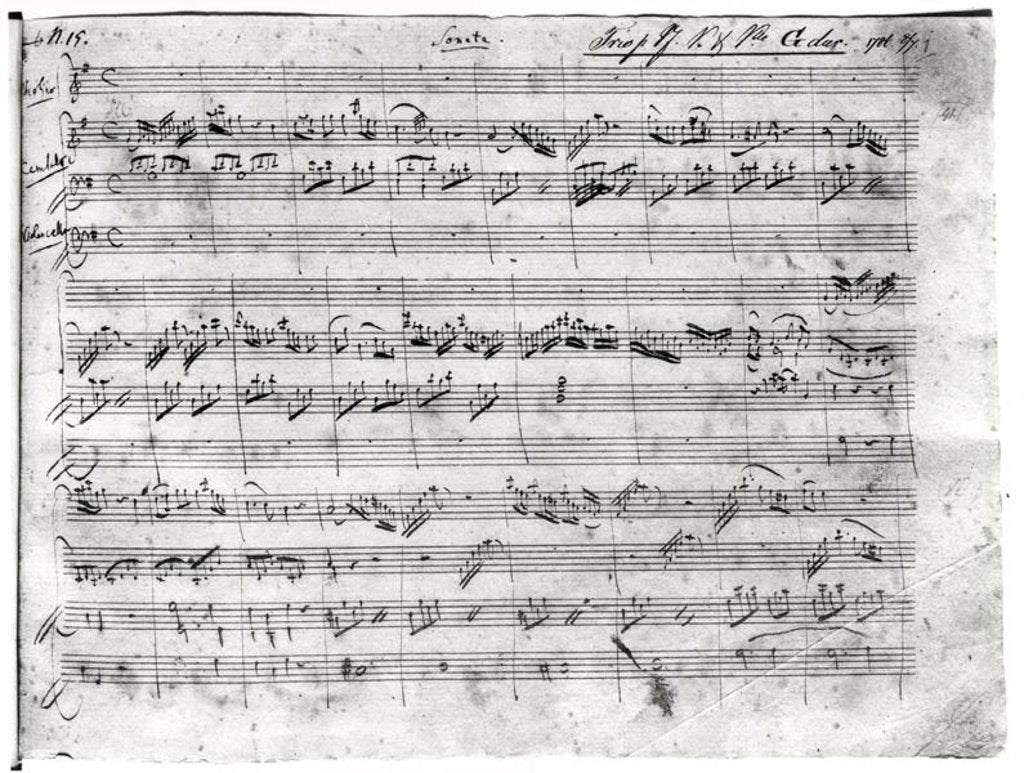 N. 15. Sonata. Trio p. Pf. V. & Vlle G dur.
Violino
Cembalo
Violoncello